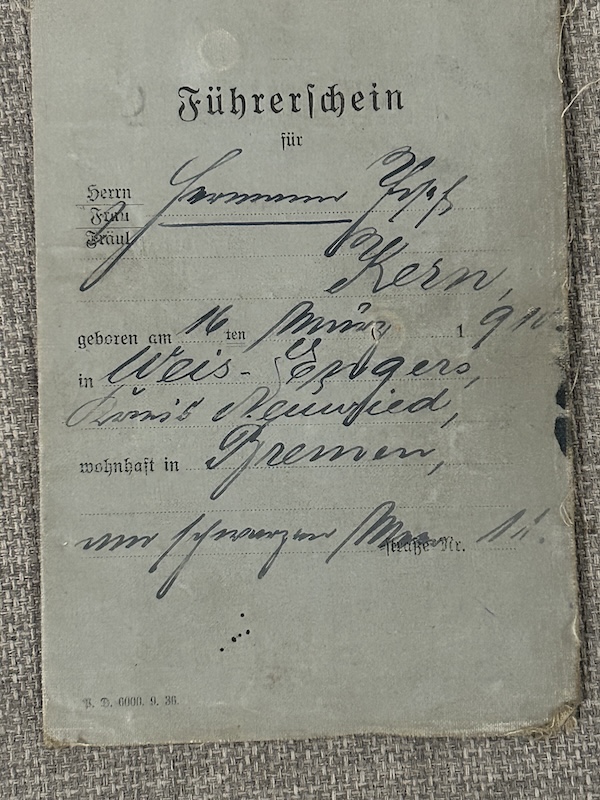 Führerschein
für
Herrn Hermann Josef
Frau
Fräul
Kern,
geboren am 16 ten März 1910.
in Weis-Engers,
Kreis Neuwied,
wohnhaft in Bremen,
am schwarzen Meer straße Nr.
P. D. 6000. 9. 36.